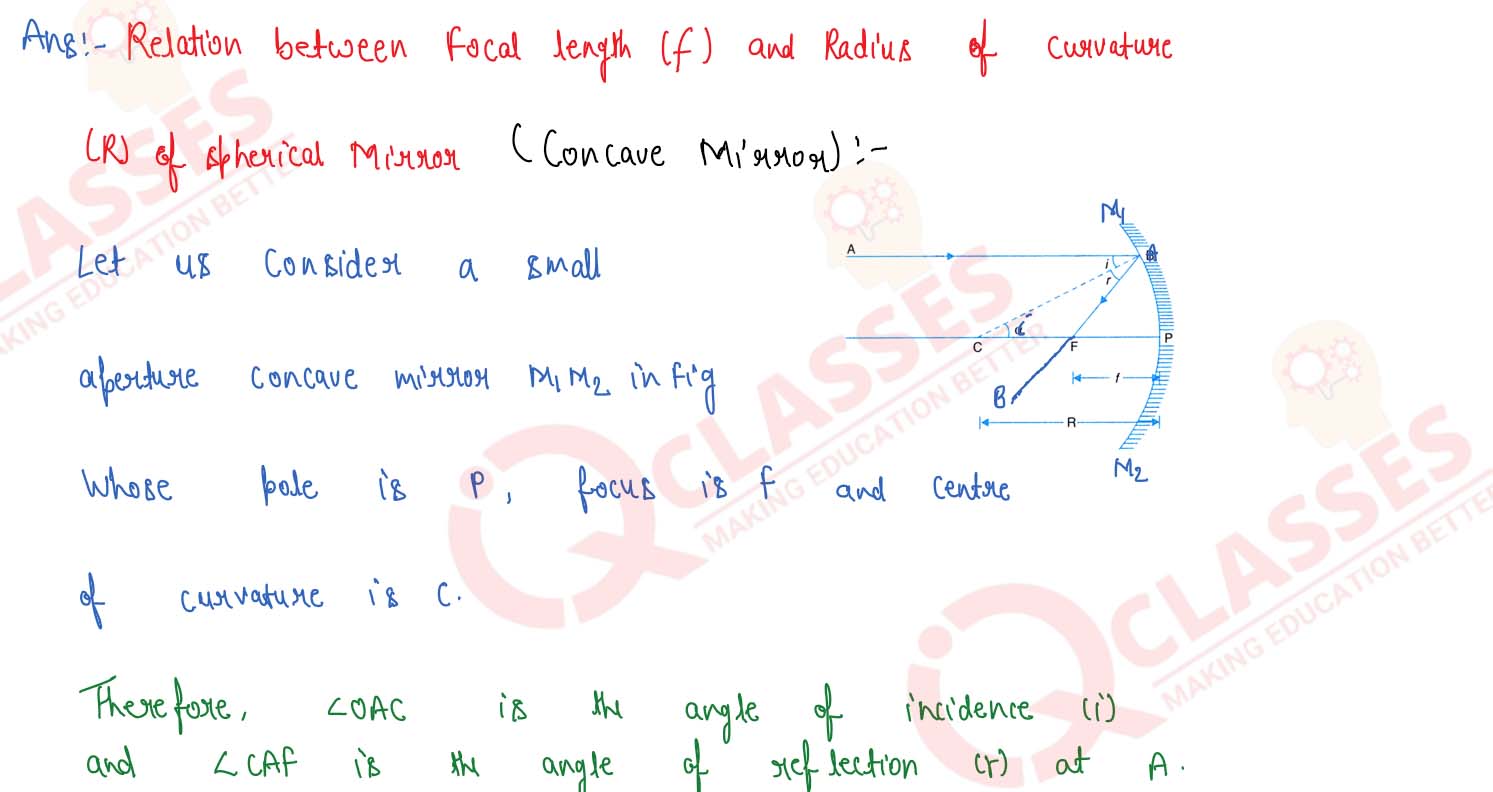 Ans:- Relation between Focal length (f) and Radius of curvature
(R) of spherical Mirror (Concave Mirror):-
Let us Consider a small
aperture concave mirror M1 M2 in fig
Whose pole is P, focus is F and Centre
of curvature is C.
Therefore, ∠OAC is the angle of incidence (i)
and ∠CAF is the angle of reflection (r) at A.
M1
A
A
i
r
C
F
P
f
B
R
M2
iQ CLASSES
MAKING EDUCATION BETTER
iQ CLASSES
MAKING EDUCATION BETTER
CLASSES
MAKING EDUCATION BETTER